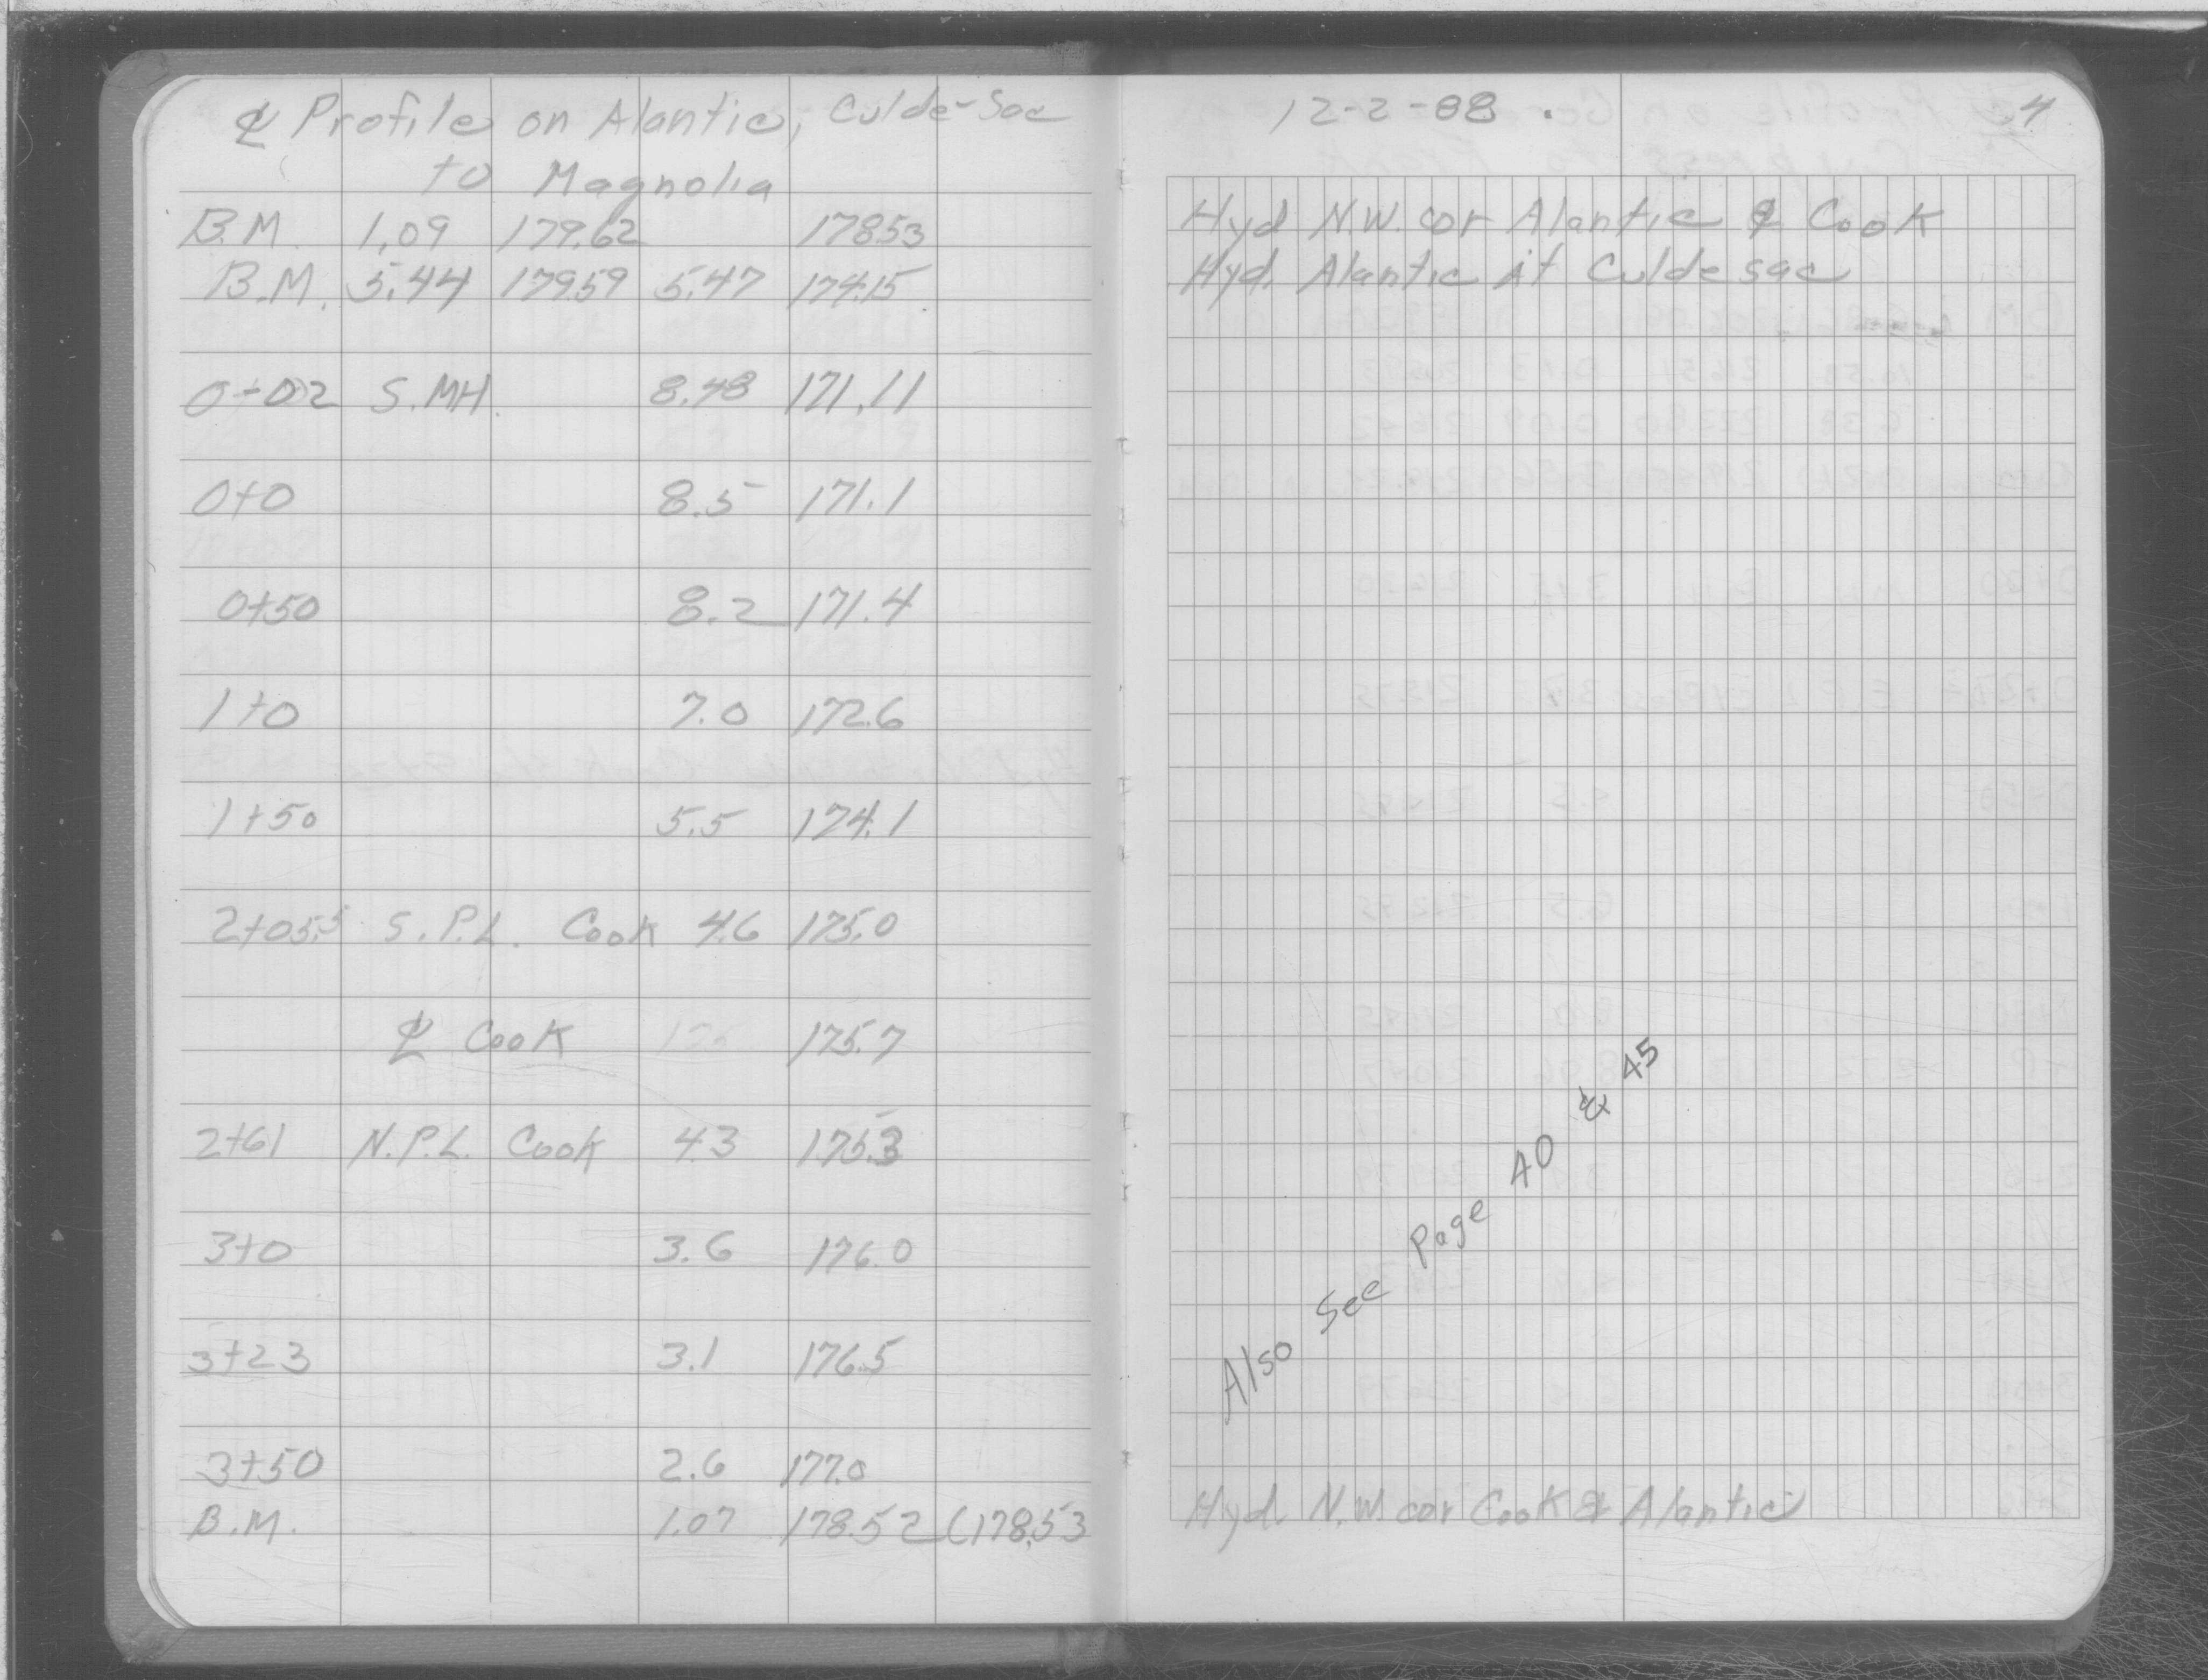 ℄ Profile on Alantic, Culde-Sac
to Magnolia
B.M. 1.09 179.62 178.53
B.M. 5.44 179.59 5.47 174.15
0+02 S.MH. 8.48 171.11
0+0 8.5 171.1
0+50 8.2 171.4
1+0 7.0 172.6
1+50 5.5 174.1
2+05.5 S.P.L. Cook 4.6 175.0
℄ Cook 175.7
2+61 N.P.L. Cook 4.3 175.3
3+0 3.6 176.0
3+23 3.1 176.5
3+50 2.6 177.0
B.M. 1.07 178.52 (178.53
12-2-88 . 4
Hyd N.W. cor Alantic & Cook
Hyd. Alantic At Culde sac
Also See Page 40 & 45
Hyd. N.W. cor Cook & Alantic